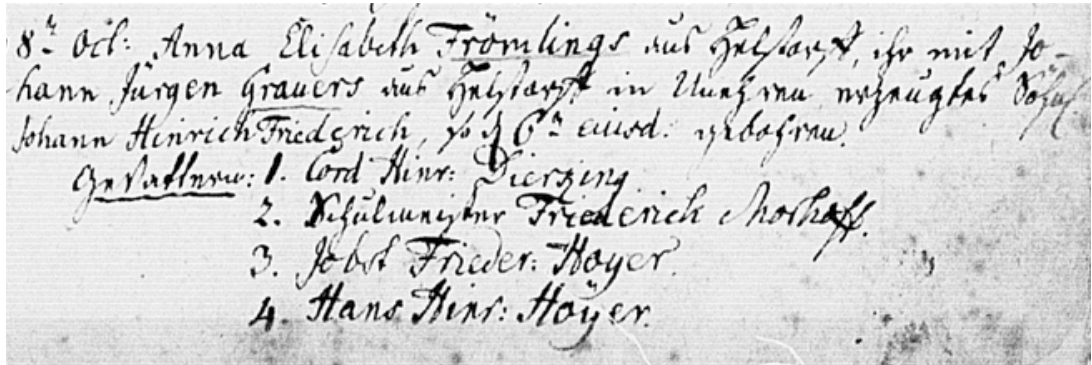 8ten Oct: Anna Elisabeth Frömlings aus Helstorff, ihr mit Jo-
hann Jürgen Grauers aus Helstorff in Unehren erzeugtes Söhnl.
Johann Hinrich Friederich, so d 6ten eiusd: gebohren.
Gevattern: 1. Cord Hinr: Dierking
2. Schulmeister Friederich Morhoff.
3. Jobst Frieder: Hoyer.
4. Hans Hinr: Höyer.